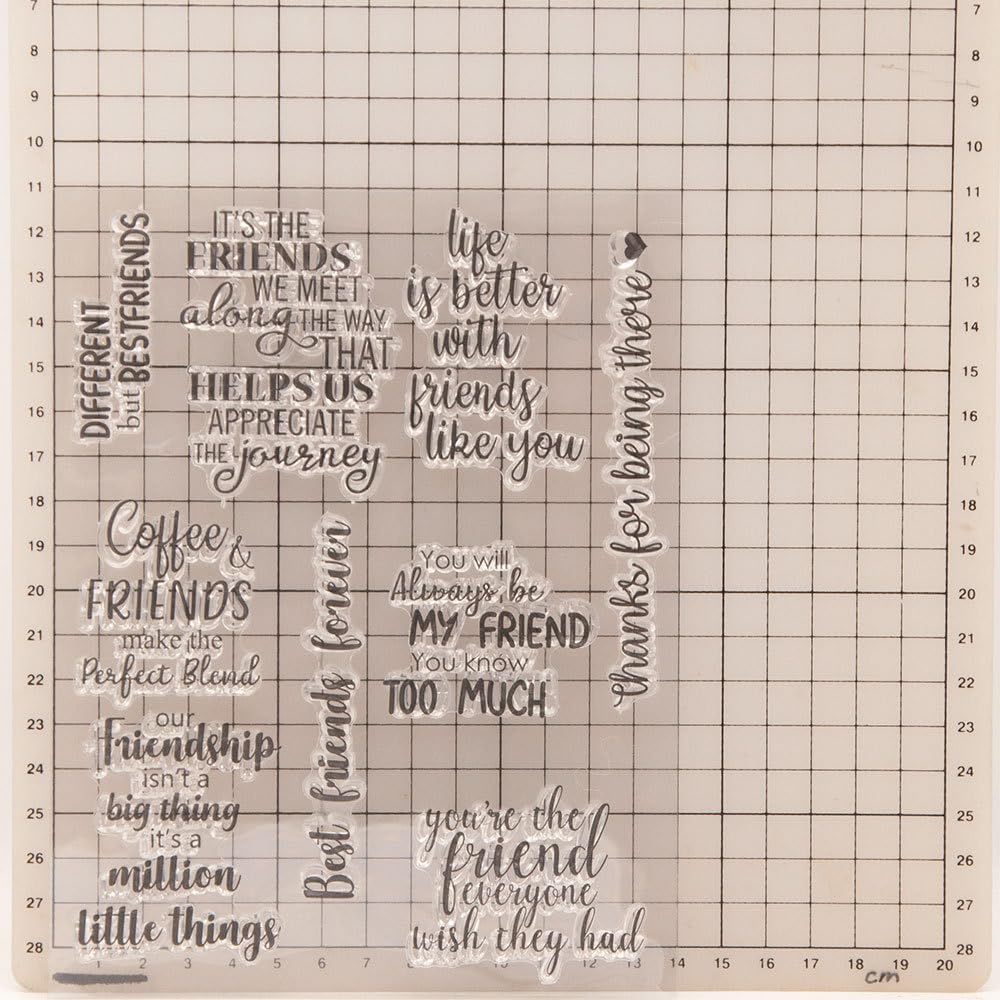 7
8
9
10
11
12
13
14
15
16
17
18
19
20
21
22
23
24
25
26
27
28
DIFFERENT
but BESTFRIENDS
IT'S THE
FRIENDS
WE MEET
along THE WAY
THAT
HELPS US
APPRECIATE
THE journey
life
is better
with
friends
like you
thanks for being there
Coffee &
FRIENDS
make the
Perfect Blend
Best friends forever
You will
Always be
MY FRIEND
You know
TOO MUCH
our
friendship
isn't a
big thing
it's a
million
little things
you're the
friend
everyone
wish they had
7
8
9
10
11
12
13
14
15
16
17
18
19
20
21
22
23
24
25
26
27
28
1 2 3 4 5 6 7 8 9 10 11 12 13 14 15 16 17 18 19 20
cm